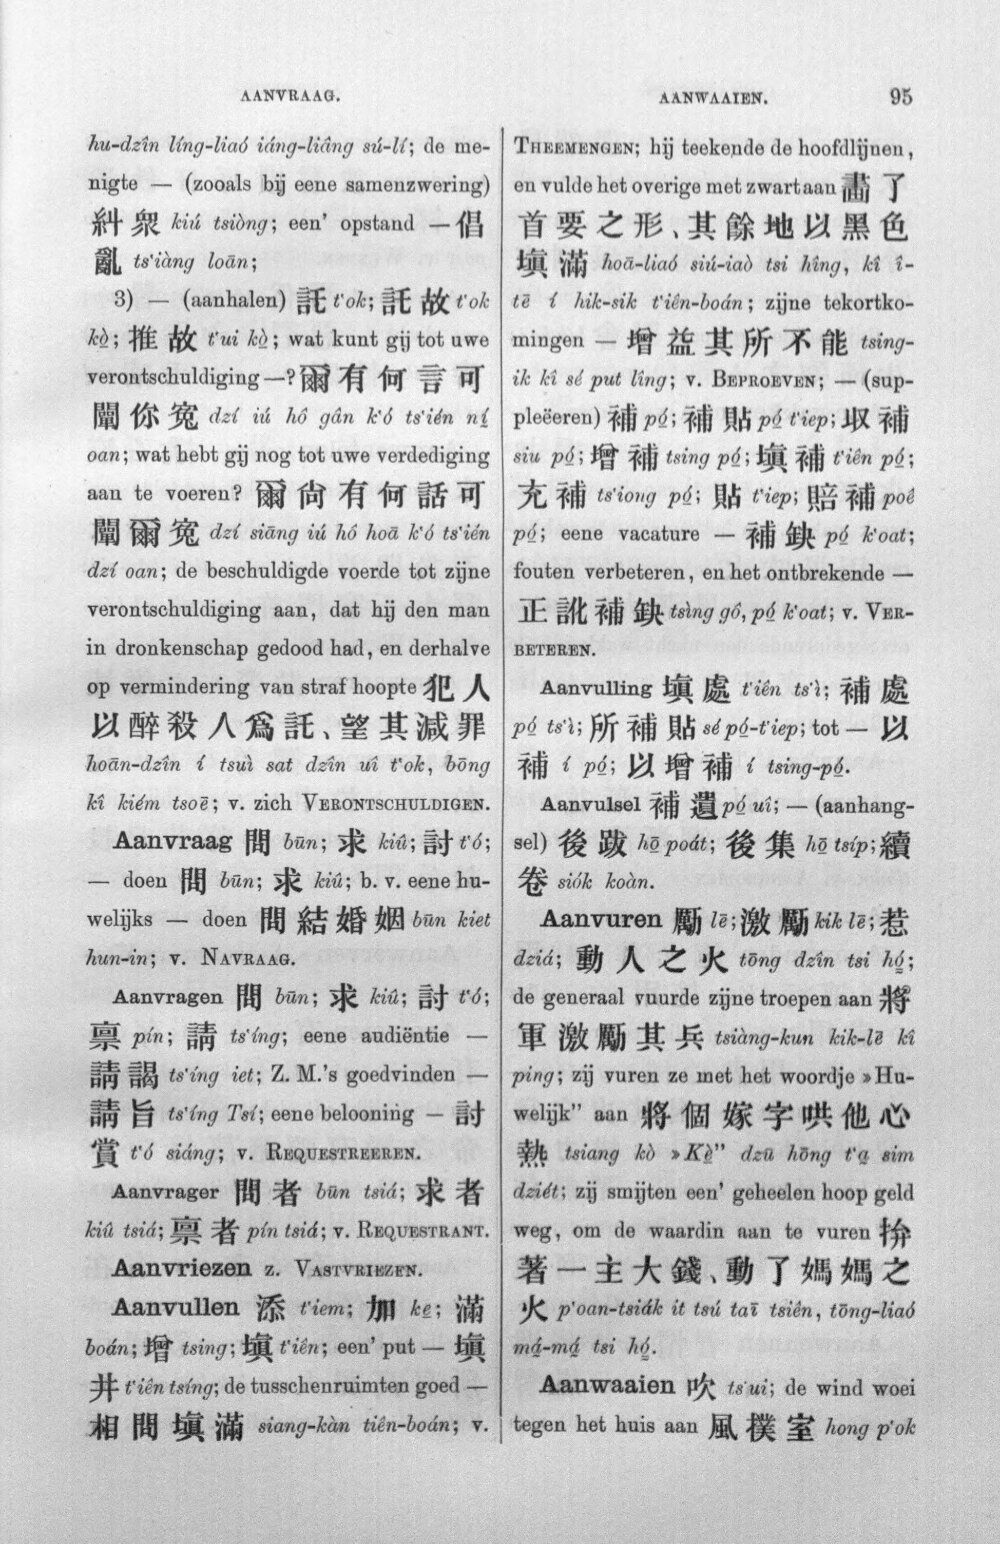 AANVRAAG.
AANWAAIEN.
95
hu-dzîn líng-liaó iáng-liâng sú-lí; de me-
nigte — (zooals bij eene samenzwering)
糾衆 kiú tsiòng; een' opstand — 倡
亂 ts‘iàng loān;
3) — (aanhalen) 託 t‘ok; 託故 t‘ok
kò̤; 推故 t‘ui kò̤; wat kunt gij tot uwe
verontschuldiging —? 爾有何言可
闡你寃 dzí iú hô gân k‘ó ts‘ién ní̤
oan; wat hebt gij nog tot uwe verdediging
aan te voeren? 爾尙有何話可
闡爾寃 dzí siāng iú hô hoā k‘ó ts‘ién
dzí oan; de beschuldigde voerde tot zijne
verontschuldiging aan, dat hij den man
in dronkenschap gedood had, en derhalve
op vermindering van straf hoopte 犯人
以醉殺人爲託、望其減罪
hoān-dzîn í tsuì sat dzîn uî t‘ok, bōng
kî kiém tsoē; v. zich VERONTSCHULDIGEN.
Aanvraag 問 būn; 求 kiû; 討 t‘ó;
— doen 問 būn; 求 kiû; b. v. eene hu-
welijks — doen 問結婚姻 būn kiet
hun-in; v. NAVRAAG.
Aanvragen 問 būn; 求 kiû; 討 t‘ó;
禀 pín; 請 ts‘íng; eene audiëntie —
請謁 ts‘íng iet; Z. M.'s goedvinden —
請旨 ts‘íng Tsí; eene belooning — 討
賞 t‘ó siáng; v. REQUESTREEREN.
Aanvrager 問者 būn tsiá; 求者
kiû tsiá; 禀者 pín tsiá; v. REQUESTRANT.
Aanvriezen z. VASTVRIEZEN.
Aanvullen 添 t‘iem; 加 ke̤; 滿
boán; 增 tsing; 塡 t‘iên; een' put — 塡
井 t‘iên tsíng; de tusschenruimten goed —
相間塡滿 siang-kàn tiên-boán; v.
THEEMENGEN; hij teekende de hoofdlijnen,
en vulde het overige met zwart aan 畵了
首要之形、其餘地以黑色
塡滿 hoā-liaó siú-iaò tsi hîng, kî î-
tē í hik-sik t‘iên-boán; zijne tekortko-
mingen — 增益其所不能 tsing-
ik kî sé put lîng; v. BEPROEVEN; — (sup-
pleëeren) 補 pó̤; 補貼 pó̤ t‘iep; 収補
siu pó̤; 增補 tsing pó̤; 塡補 t‘iên pó̤;
充補 ts‘iong pó̤; 貼 t‘iep; 賠補 poê
pó̤; eene vacature — 補缺 pó̤ k‘oat;
fouten verbeteren, en het ontbrekende —
正訛補缺 tsìng gô, pó̤ k‘oat; v. VER-
BETEREN.
Aanvulling 塡處 t‘iên ts‘ì; 補處
pó̤ ts‘ì; 所補貼 sé pó̤-t‘iep; tot — 以
補 í pó̤; 以增補 í tsing-pó̤.
Aanvulsel 補遺 pó̤ uî; — (aanhang-
sel) 後跋 hō̤ poát; 後集 hō̤ tsíp; 續
卷 siók koàn.
Aanvuren 勵 lē; 激勵 kik lē; 惹
dziá; 動人之火 tōng dzîn tsi hó̤;
de generaal vuurde zijne troepen aan 將
軍激勵其兵 tsiàng-kun kik-lē kî
ping; zij vuren ze met het woordje »Hu-
welijk” aan 將個嫁字哄他心
熱 tsiang kò »Kè̤” dzū hōng t‘a̤ sim
dziét; zij smijten een' geheelen hoop geld
weg, om de waardin aan te vuren 拚
著一主大錢、動了媽媽之
火 p‘oan-tsiák it tsú taī tsiên, tōng-liaó
má̤-má̤ tsi hó̤.
Aanwaaien 吹 ts‘ui; de wind woei
tegen het huis aan 風撲室 hong p‘ok